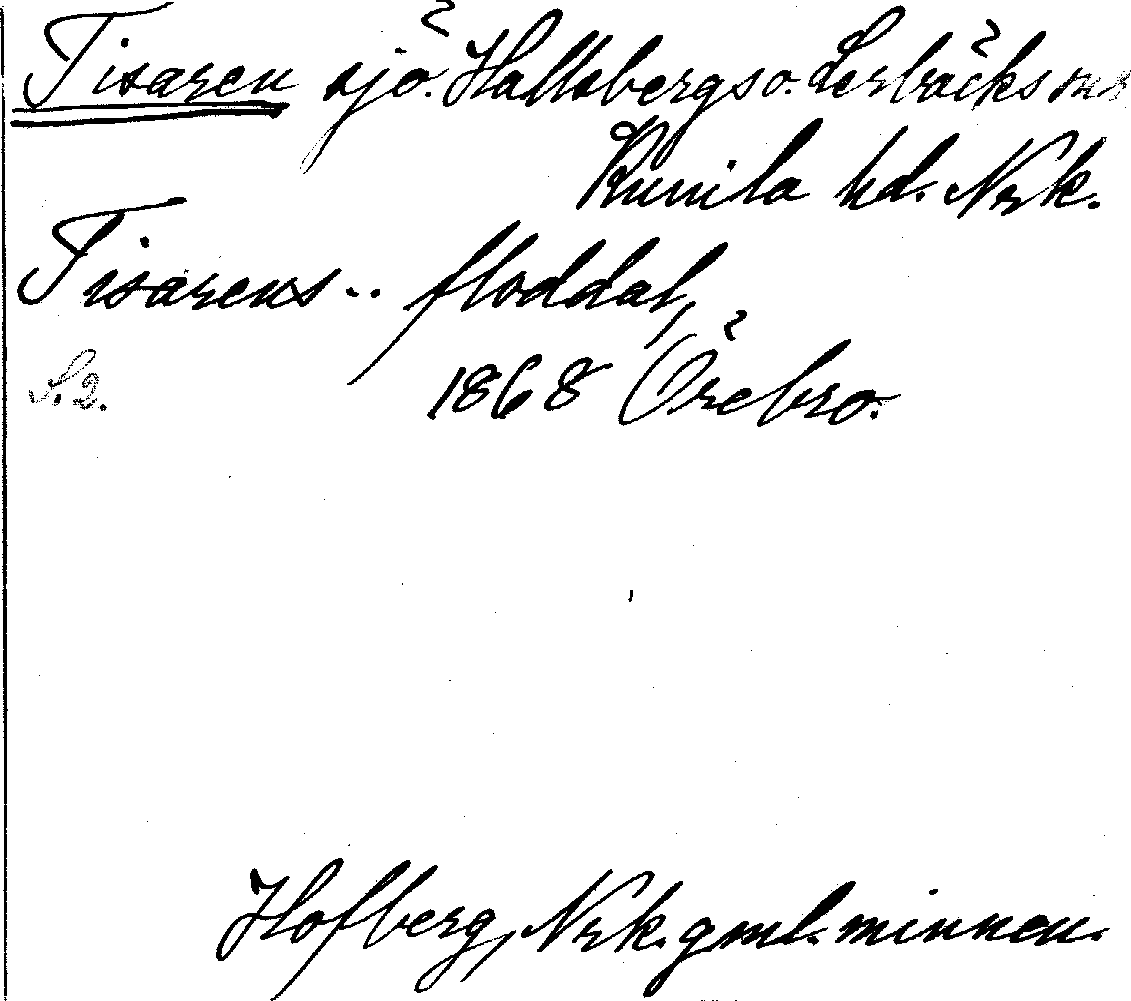 Tisaren sjö. Hallsbergs o. Lerbäcks snr
Kumla hd. Nrk.
Tisarens .. floddal,
S. 2. 1868 Örebro.
Hofberg, Nrk. gml. minnen.